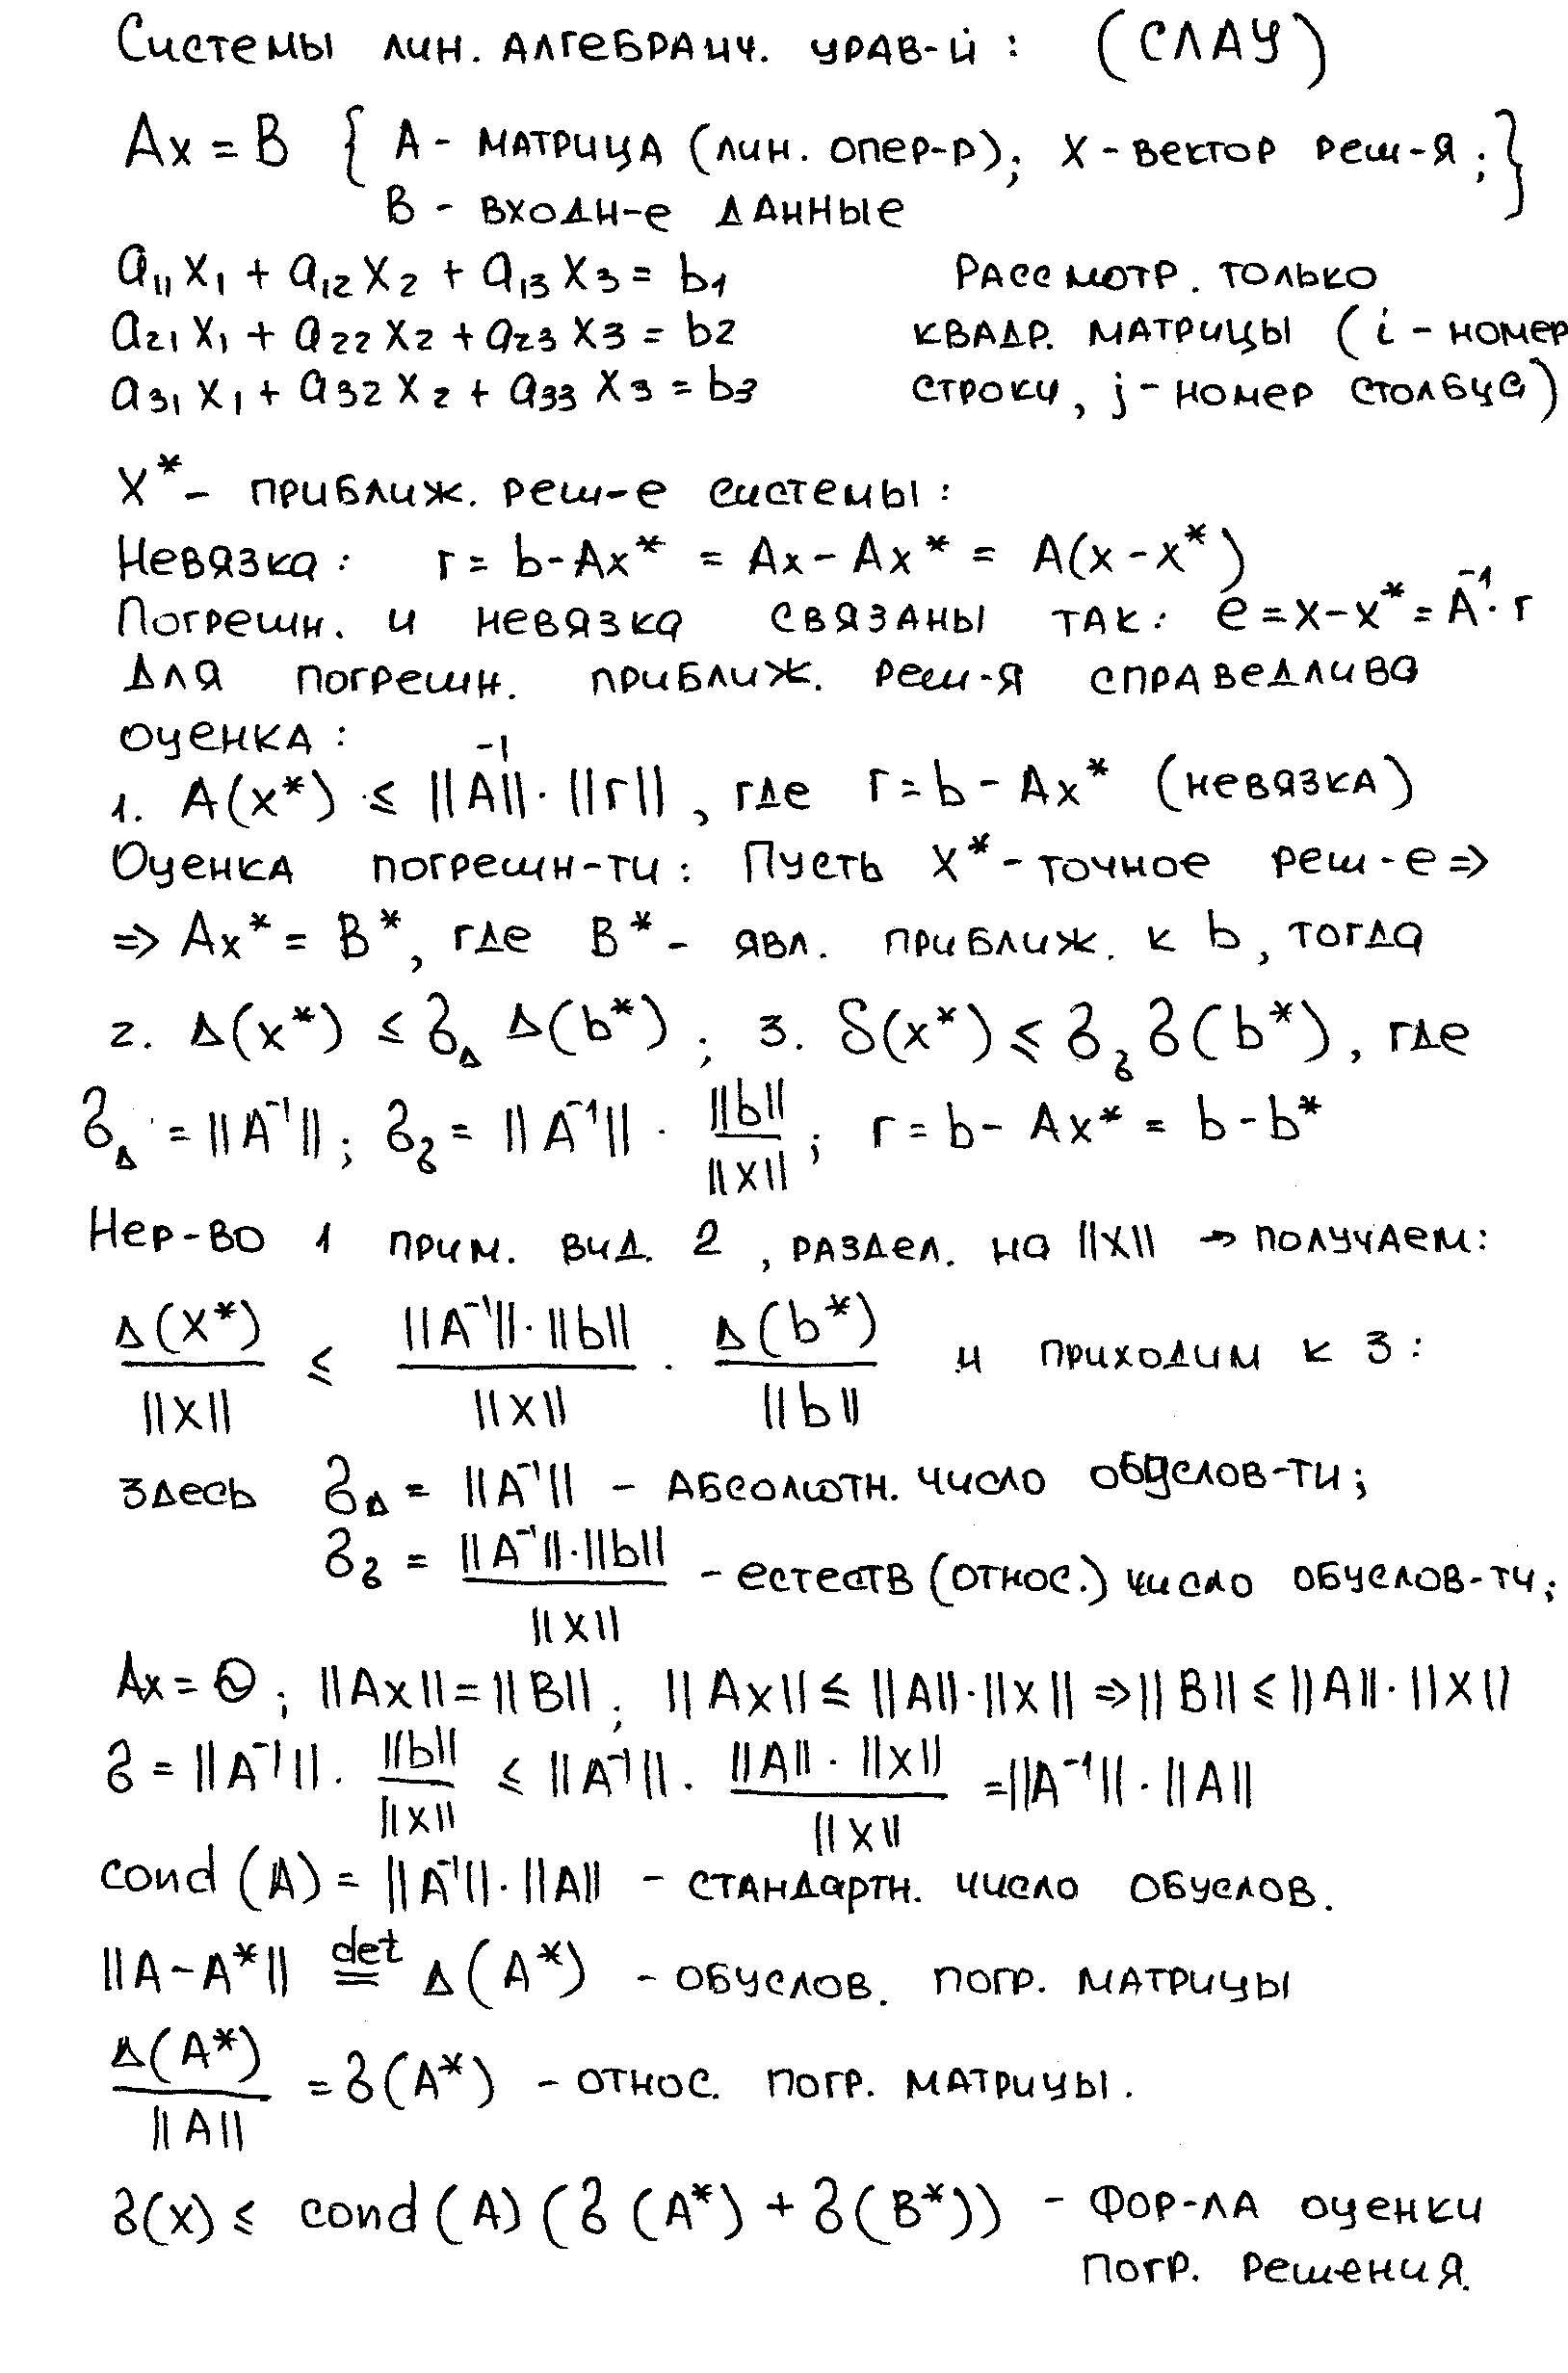 Системы лин. алгебраич. урав-й: (СЛАУ)
Ax = B { A - матрица (лин. опер-р); X - вектор реш-я; }
B - входн-е данные
a₁₁x₁ + a₁₂x₂ + a₁₃x₃ = b₁ Рассмотр. только
a₂₁x₁ + a₂₂x₂ + a₂₃x₃ = b₂ квадр. матрицы (i - номер
a₃₁x₁ + a₃₂x₂ + a₃₃x₃ = b₃ строки, j - номер столбца)
X* - приближ. реш-е системы:
Невязка: r = b - Ax* = Ax - Ax* = A(x - x*)
Погрешн. и невязка связаны так: e = x - x* = A⁻¹· r
Для погрешн. приближ. реш-я справедлива
оценка:
1. A(x*) ≤ ||A⁻¹|| · ||r||, где r = b - Ax* (невязка)
Оценка погрешн-ти: Пусть X* - точное реш-е =>
=> Ax* = B*, где B* - явл. приближ. к b, тогда
2. Δ(x*) ≤ δ_Δ Δ(b*); 3. δ(x*) ≤ δ_δ δ(b*), где
δ_Δ = ||A⁻¹||; δ_δ = ||A⁻¹|| · ||b||/||x||; r = b - Ax* = b - b*
Нер-во 1 прим. вид. 2, раздел. на ||x|| → получаем:
Δ(x*)/||x|| ≤ ||A⁻¹||·||b||/||x|| · Δ(b*)/||b|| и приходим к 3:
здесь δ_Δ = ||A⁻¹|| - абсолютн. число обуслов-ти;
δ_δ = ||A⁻¹||·||b||/||x|| - естеств (относ.) число обуслов-ти;
Ax = B; ||Ax|| = ||B||; ||Ax|| ≤ ||A||·||x|| => ||B|| ≤ ||A||·||x||
δ = ||A⁻¹|| · ||b||/||x|| ≤ ||A⁻¹|| · ||A||·||x||/||x|| = ||A⁻¹|| · ||A||
cond (A) = ||A⁻¹||·||A|| - стандартн. число обуслов.
||A - A*|| det= Δ(A*) - обуслов. погр. матрицы
Δ(A*)/||A|| = δ(A*) - относ. погр. матрицы.
δ(x) ≤ cond(A) (δ(A*) + δ(B*)) - фор-ла оценки
погр. решения.